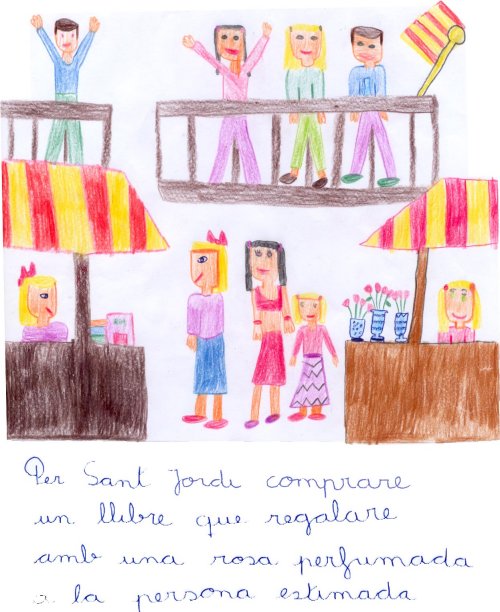 Per Sant Jordi comprare
un llibre que regalare
amb una rosa perfumada
a la persona estimada